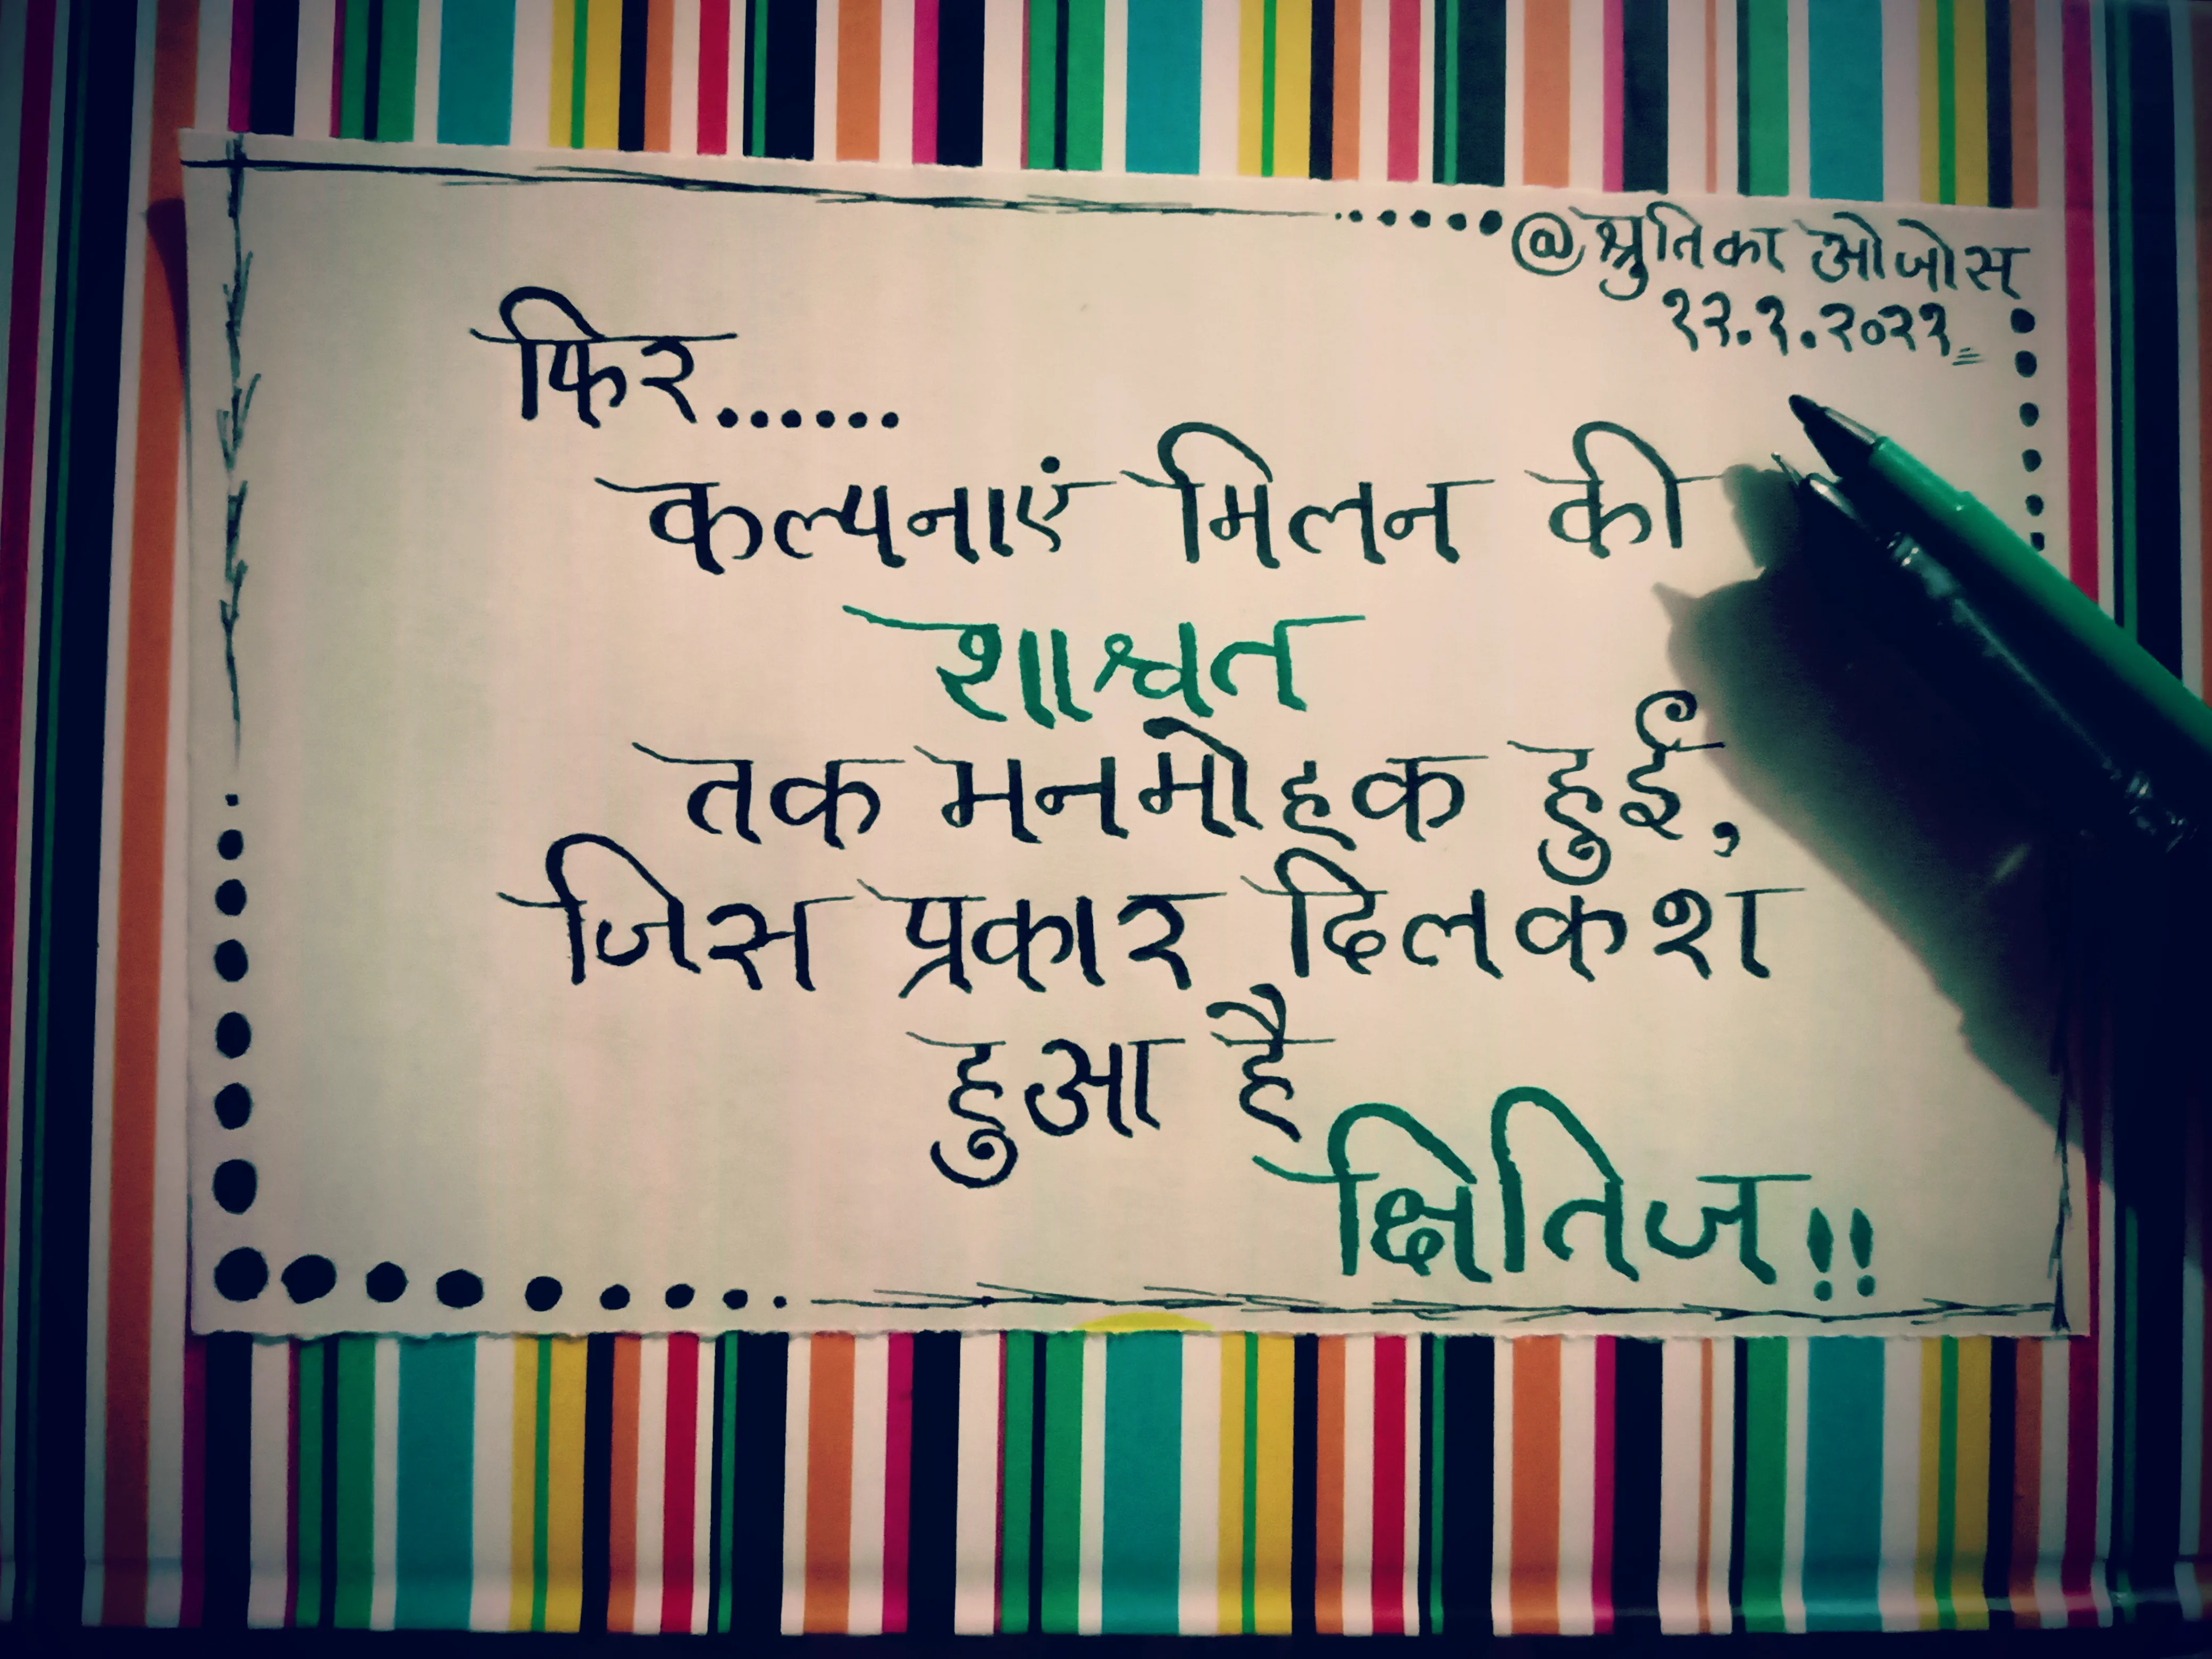 @श्रुतिका ओजोस
१२.१.२०२१
फिर......
कल्पनाएं मिलन की
शाश्वत
तक मनमोहक हुई,
जिस प्रकार दिलकश
हुआ है
क्षितिज!!